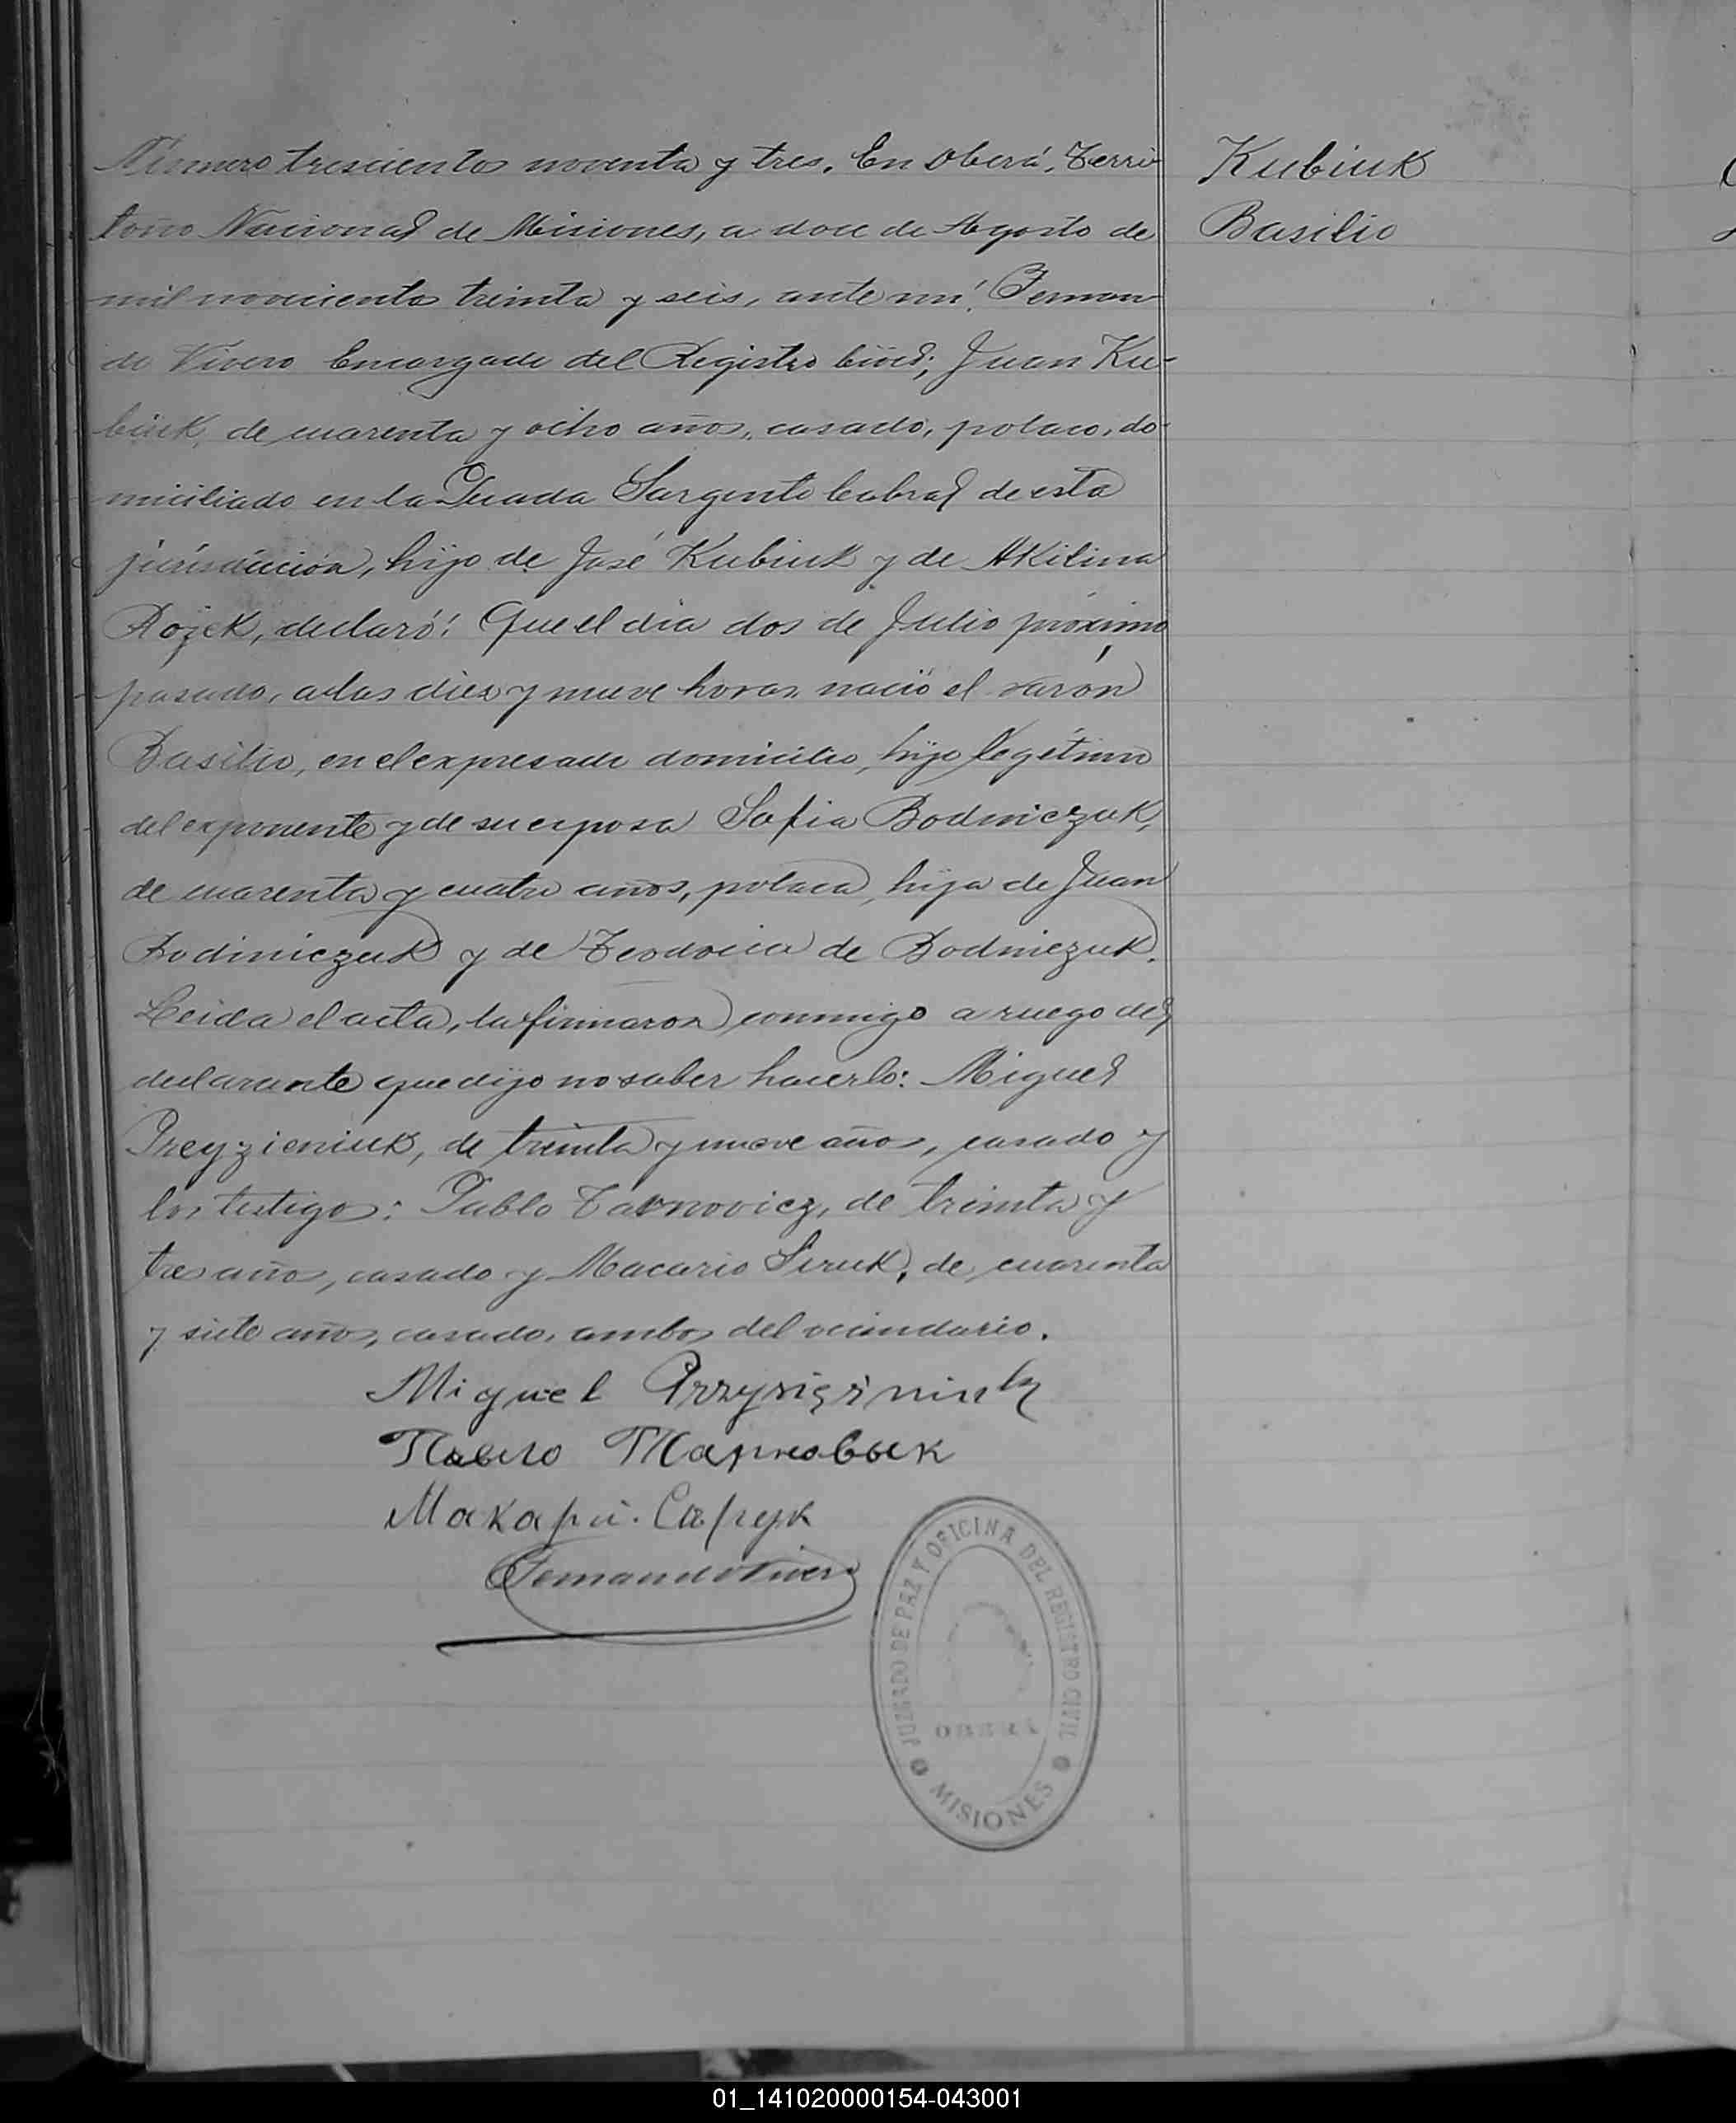 Número trescientos noventa y tres. En Oberá, Terri-
torio Nacional de Misiones, a doce de Agosto de
mil novecientos treinta y seis, ante mí: Fernan-
do Vivero Encargado del Registro Civil; Juan Ku-
biuk, de cuarenta y ocho años, casado, polaco, do-
miciliado en la Picada Sargento Cabral de esta
jurisdicción, hijo de José Kubiuk y de Akilina
Rojek, declaró: Que el día dos de Julio próximo
pasado, a las diez y nueve horas nació el varón
Basilio, en el expresado domicilio, hijo legítimo
del exponente y de su esposa Sofia Bodniczuk,
de cuarenta y cuatro años, polaca, hija de Juan
Bodiniczuk y de de Bodniczuk.
Leida el acta, la firmaron conmigo a ruego del
declarante que dijo no saber hacerlo: Miguel
Preyzieniuk, de treinta y nueve años, casado y
los testigos: Pablo Tarnovicz, de treinta y
tres años, casado y Macario Seruk, de cuarenta
y siete años, casado, ambos del vecindario.
Miguel
Павло Тарновык
Макари. Сарук
Fernando Vivero
Kubiuk
Basilio
JUZGADO DE PAZ Y OFICINA DEL REGISTRO CIVIL
OBERÁ
MISIONES
01_141020000154-043001